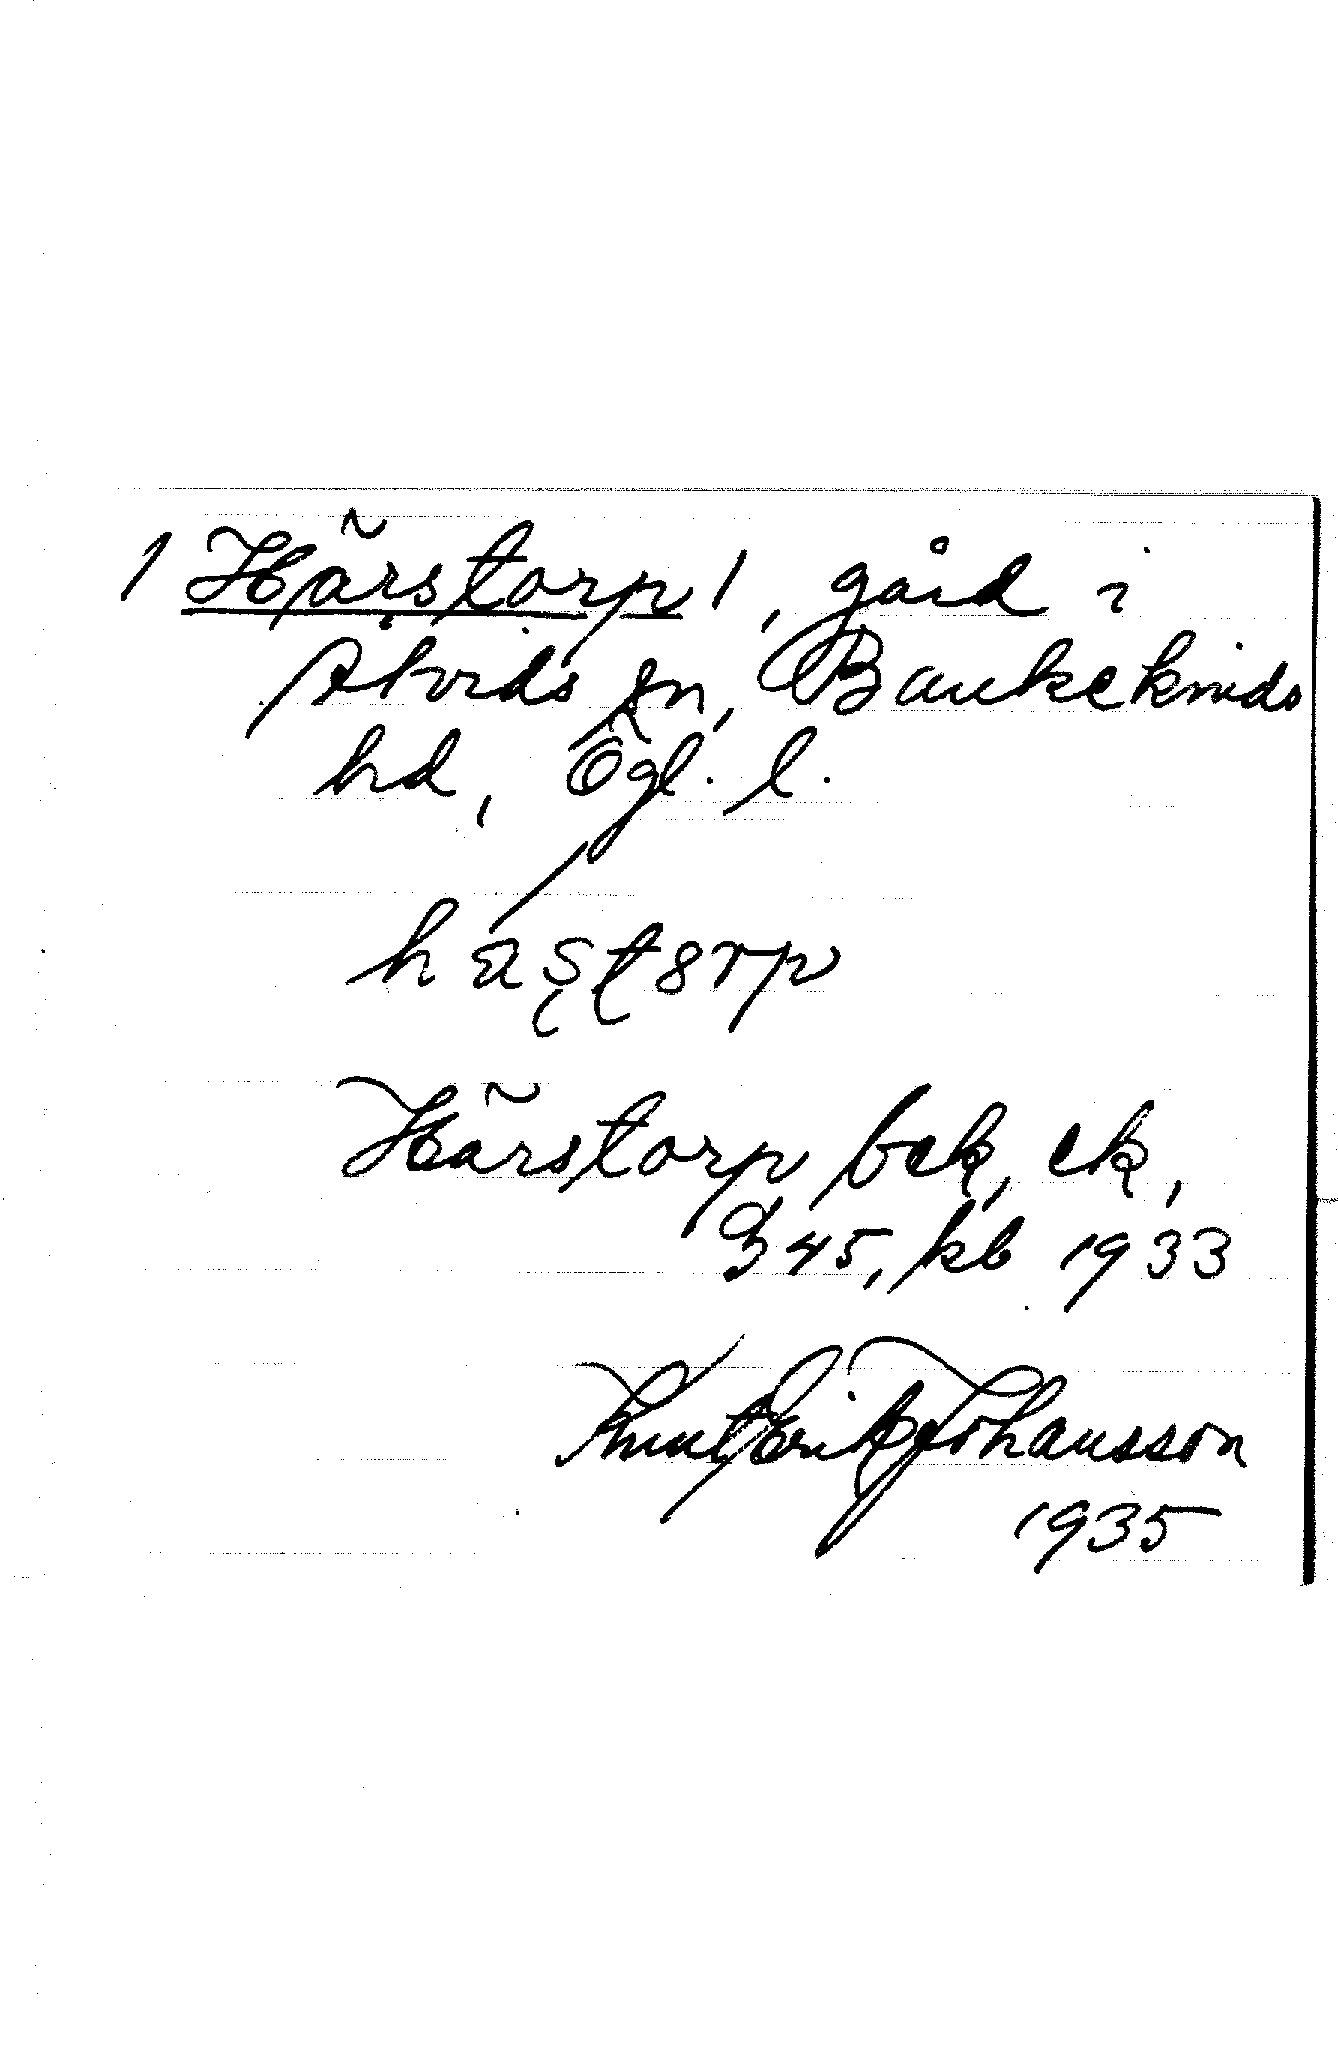 / Härstorp /, gård i
Åtvids sn, Bankekinds
hd, Ögl. l.
has̨t̨8rp
Härstorp bek, ek,
G 45, kb 1933
Knut Erik Johansson
1935